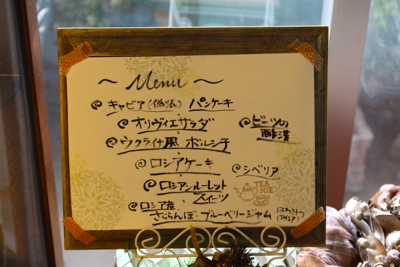 ～ Menu ～
@キャビア(偽物) パンケーキ
@オリヴィエサラダ
@ビーツの
酢漬
@ウクライナ風 ボルシチ
@ロシアケーキ
@シベリア
@ロシアンルーレット
スイーツ
TEA
TIME
@ロシア産
さくらんぼ ブルーベリージャム